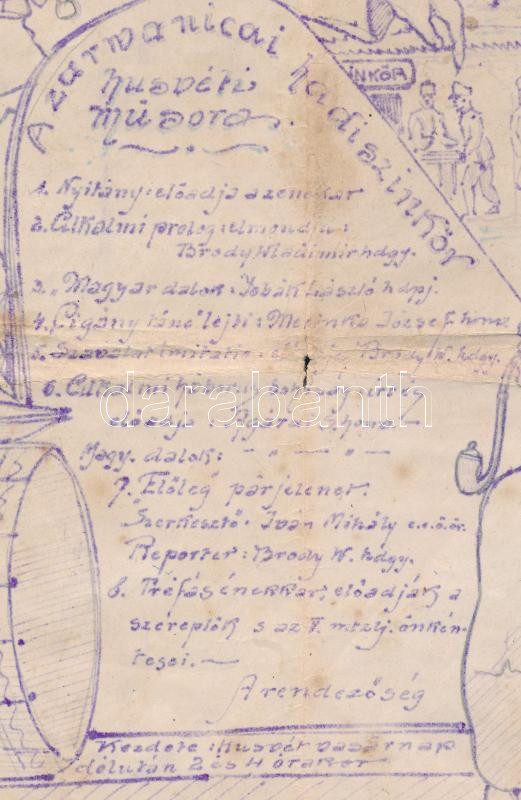 A zarwanicai hadiszinkör
husvéti
müsora.
INKÖR
1. Nyitány: előadja a zenekar
2. Alkalmi prolog: elmondja:
Brody Wladimir hdgy.
3. Magyar dalok: László hdpj.
4. Cigány tánc lejti: Merinka József honv
5. imitatio: Brody W. hdgy.
6. Alkalmi
előadja
Magy. dalok: - " - — " -
7. Előleg párjelenet.
Szerkesztő: Ivan Mihály e.é.ö.őr.
Reporter: Brody W. hdgy.
8. Tréfás énekkar, előadják a
szereplők s az V. önkén-
tesei. —
A rendezőség
Kezdete: husvét vasárnap
délután 2 és 4 órakor
darabanth